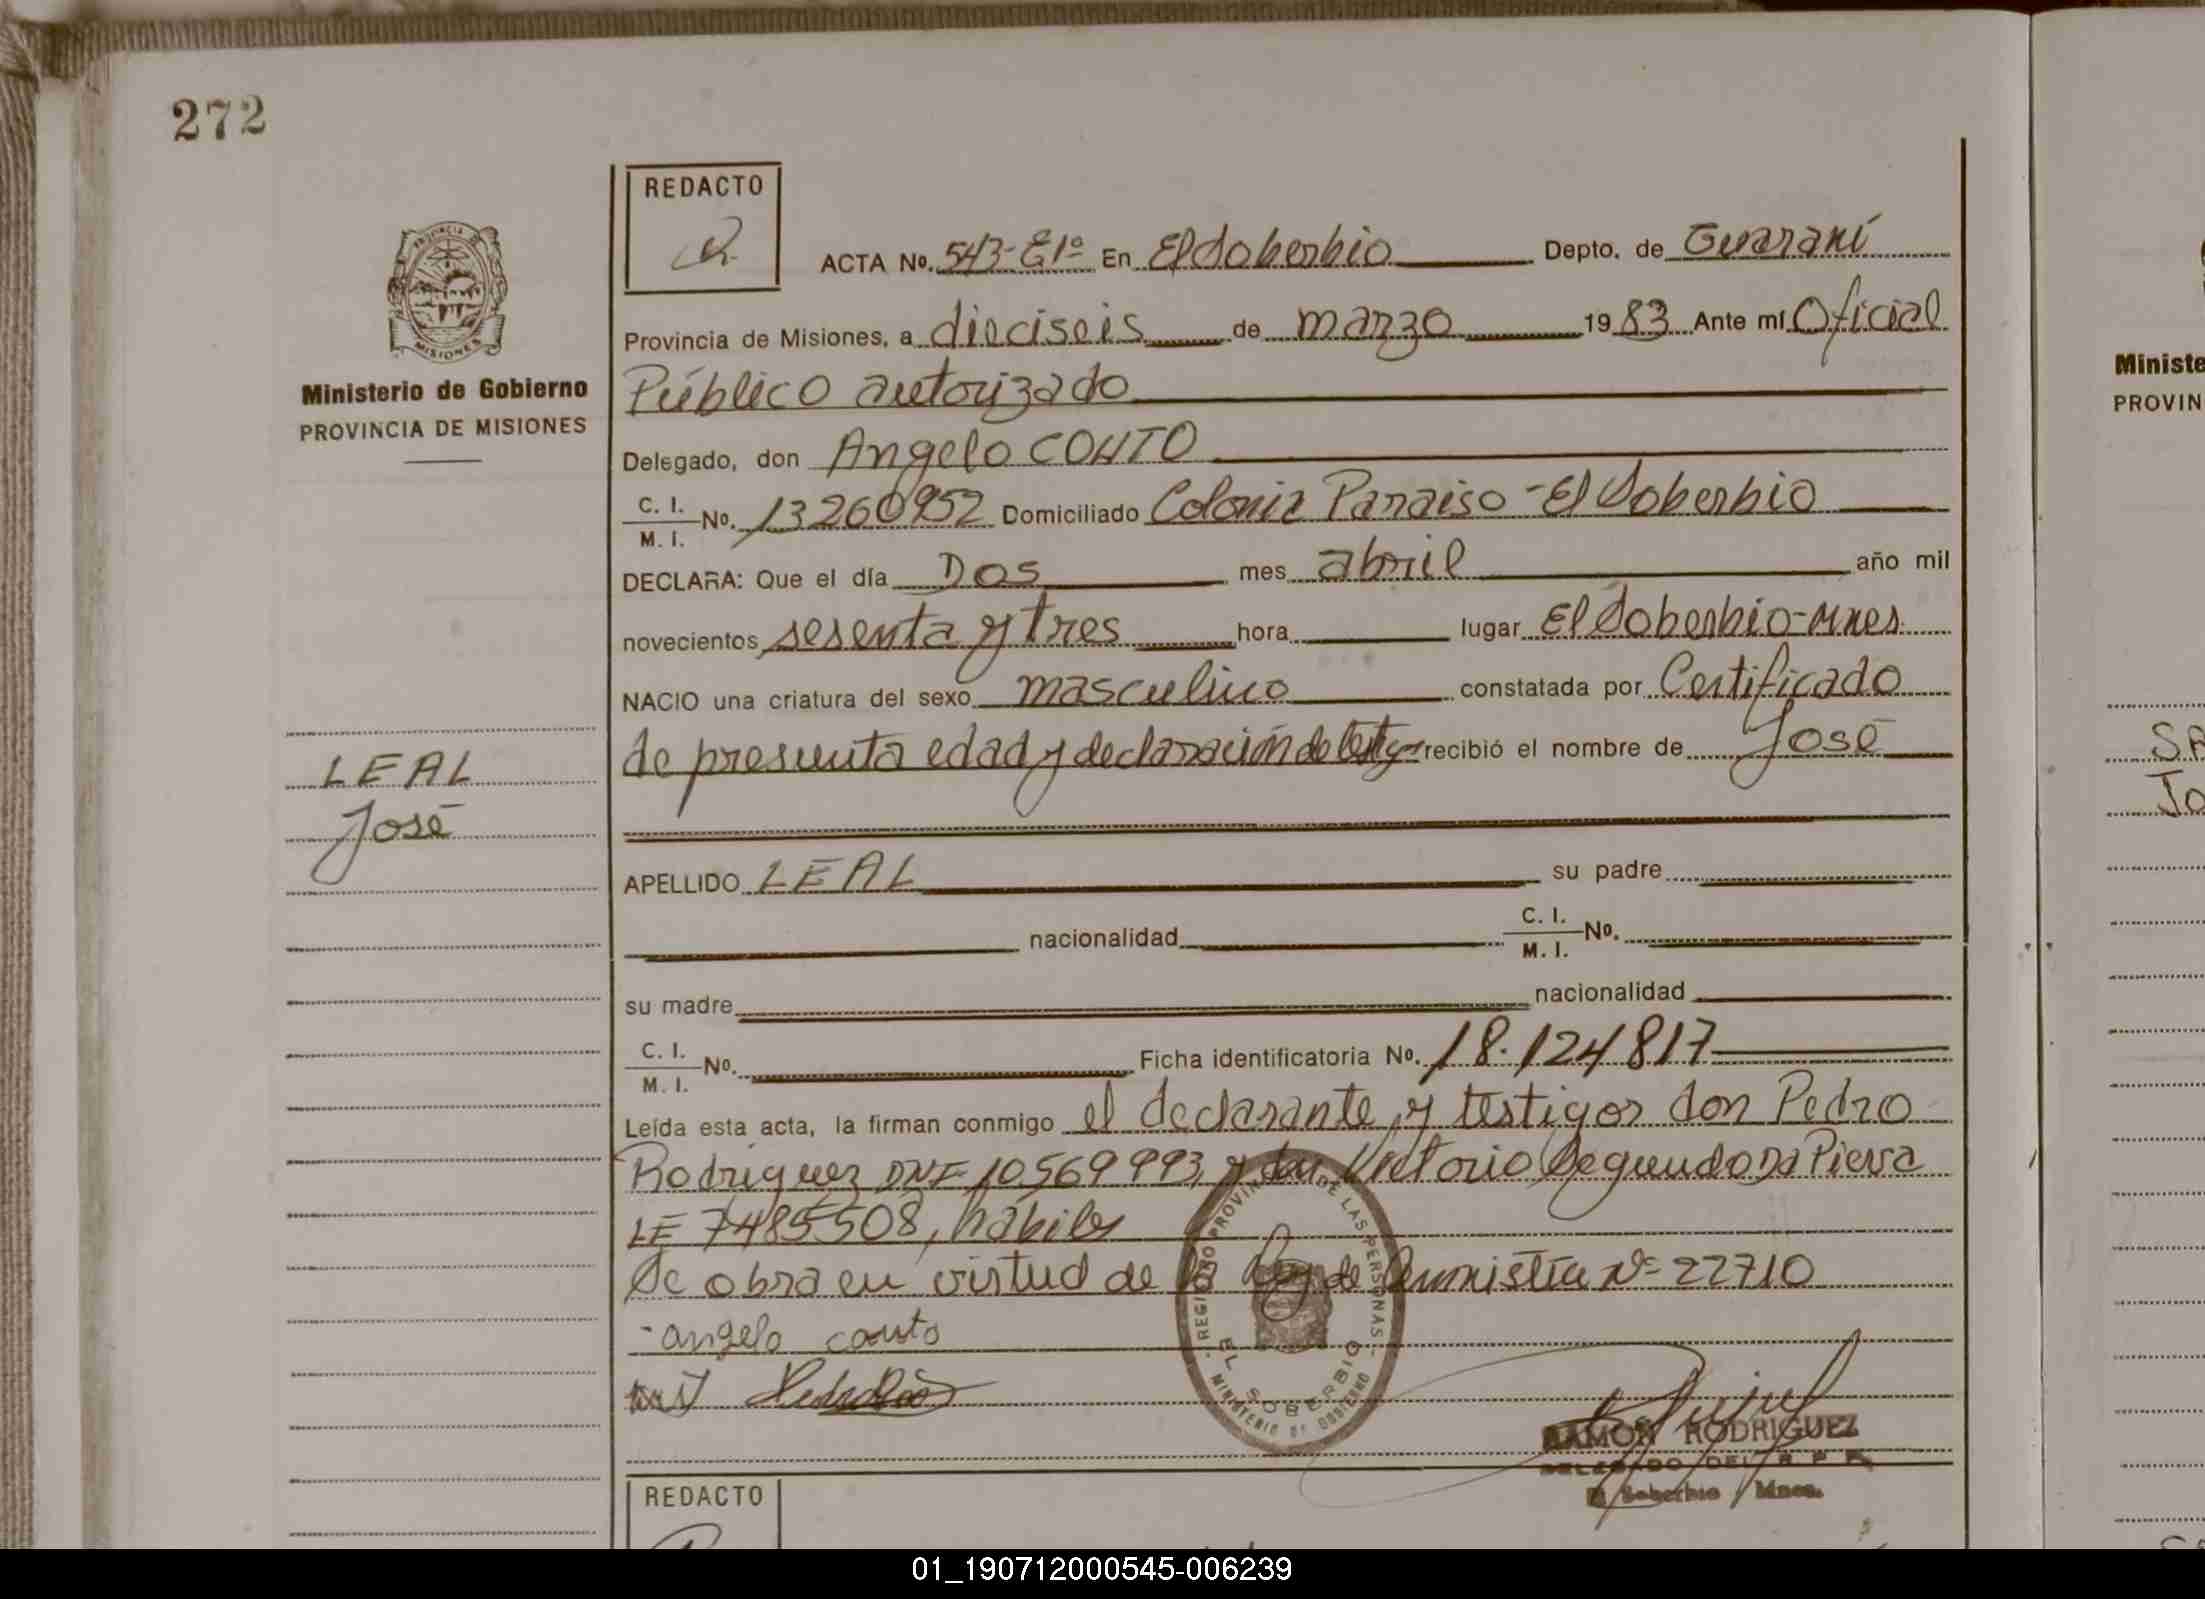 272
REDACTO
PROVINCIA DE
MISIONES
Ministerio de Gobierno
PROVINCIA DE MISIONES
ACTA No. 543-E1º En El Soberbio Depto. de Guaraní
Provincia de Misiones, a dieciseis de marzo 1983 Ante mí Oficial
Público autorizado
Delegado, don Angelo COUTO
C. I.
M. I. No. 13260952 Domiciliado Colonia Paraiso - El Soberbio
DECLARA: Que el día Dos mes abril año mil
novecientos sesenta y tres hora lugar El Soberbio-Mnes.
NACIO una criatura del sexo masculino constatada por Certificado
de presunta edad y declaración de testigos recibió el nombre de José
LEAL
José
APELLIDO LEAL su padre
nacionalidad C. I.
M. I. No.
su madre nacionalidad
C. I.
M. I. No. Ficha identificatoria No. 18.124817
Leída esta acta, la firman conmigo el declarante y testigos don Pedro
Rodriguez DNI 10569993, y don Victorio Segundo Da Pieva
LE 7485508, hábiles
Se obra en virtud de la Ley de Amnistía Nº 22710
- angelo couto
REGISTRO PROVINCIAL DE LAS PERSONAS
EL SOBERBIO
MINISTERIO DE GOBIERNO
RAMON RODRIGUEZ
DELEGADO DEL R P P
El Soberbio Mnes.
REDACTO
Ministe
PROVIN
01_190712000545-006239